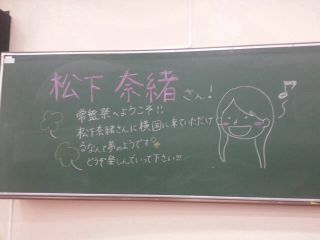 松下奈緒さん!
常盤祭へようこそ!!
松下奈緒さんに横国に来ていただけ
るなんて夢のようです
どうぞ楽しんでいって下さい!!!